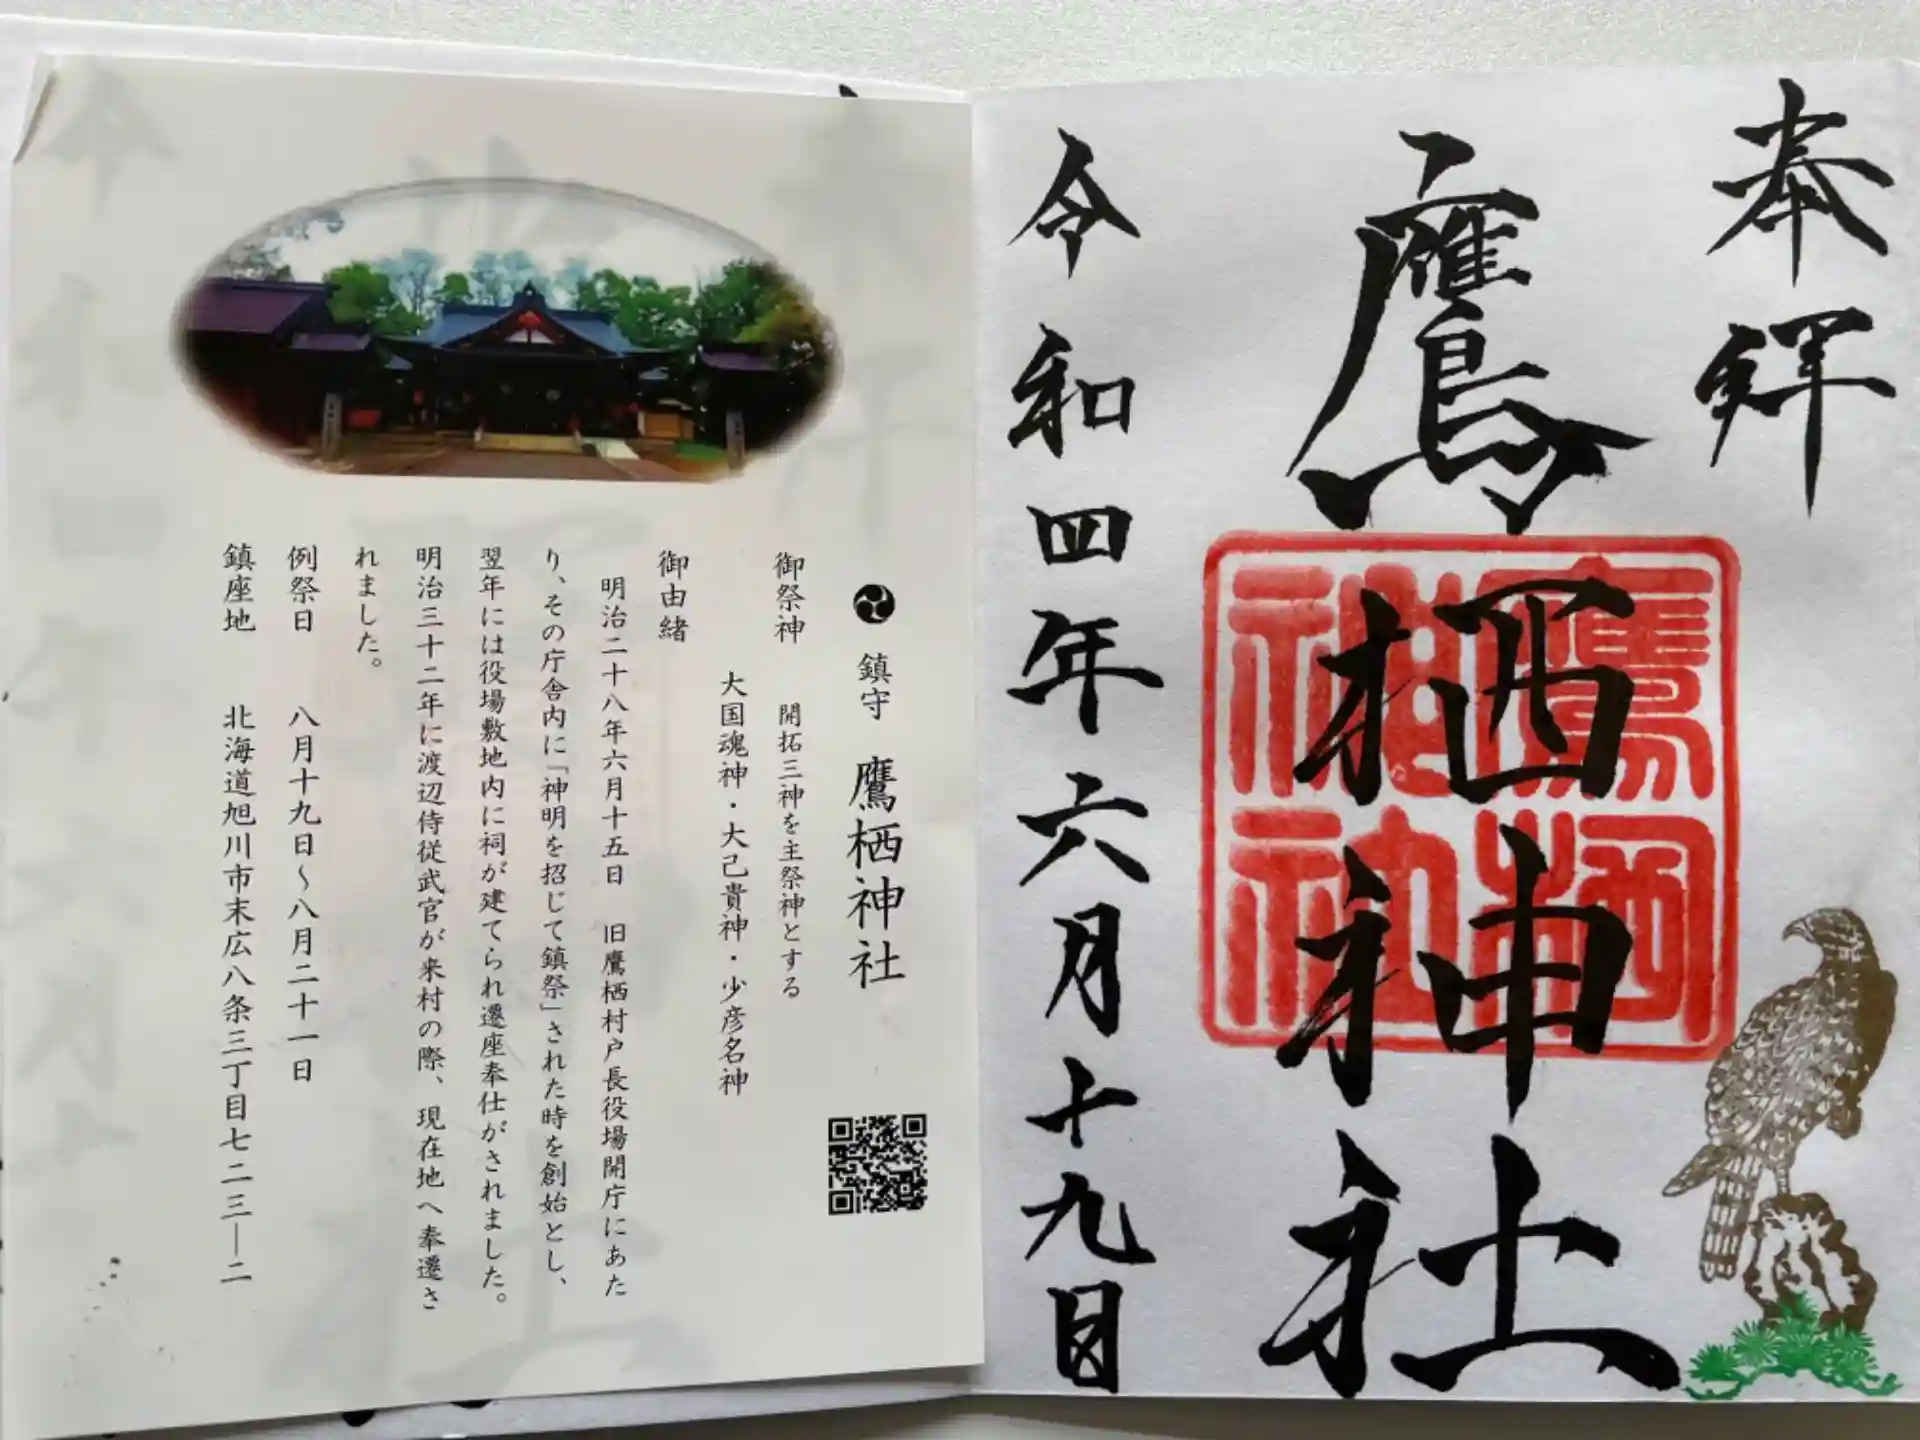 奉拝
鷹栖神社
鷹栖
神社
令和四年六月十九日
鎮守 鷹栖神社
御祭神 開拓三神を主祭神とする
大国魂神・大己貴神・少彦名神
御由緒
明治二十八年六月十五日 旧鷹栖村戸長役場開庁にあた
り、その庁舎内に「神明を招じて鎮祭」された時を創始とし、
翌年には役場敷地内に祠が建てられ遷座奉仕がされました。
明治三十二年に渡辺侍従武官が来村の際、現在地へ奉遷さ
れました。
例祭日 八月十九日～八月二十一日
鎮座地 北海道旭川市末広八条三丁目七二三―二